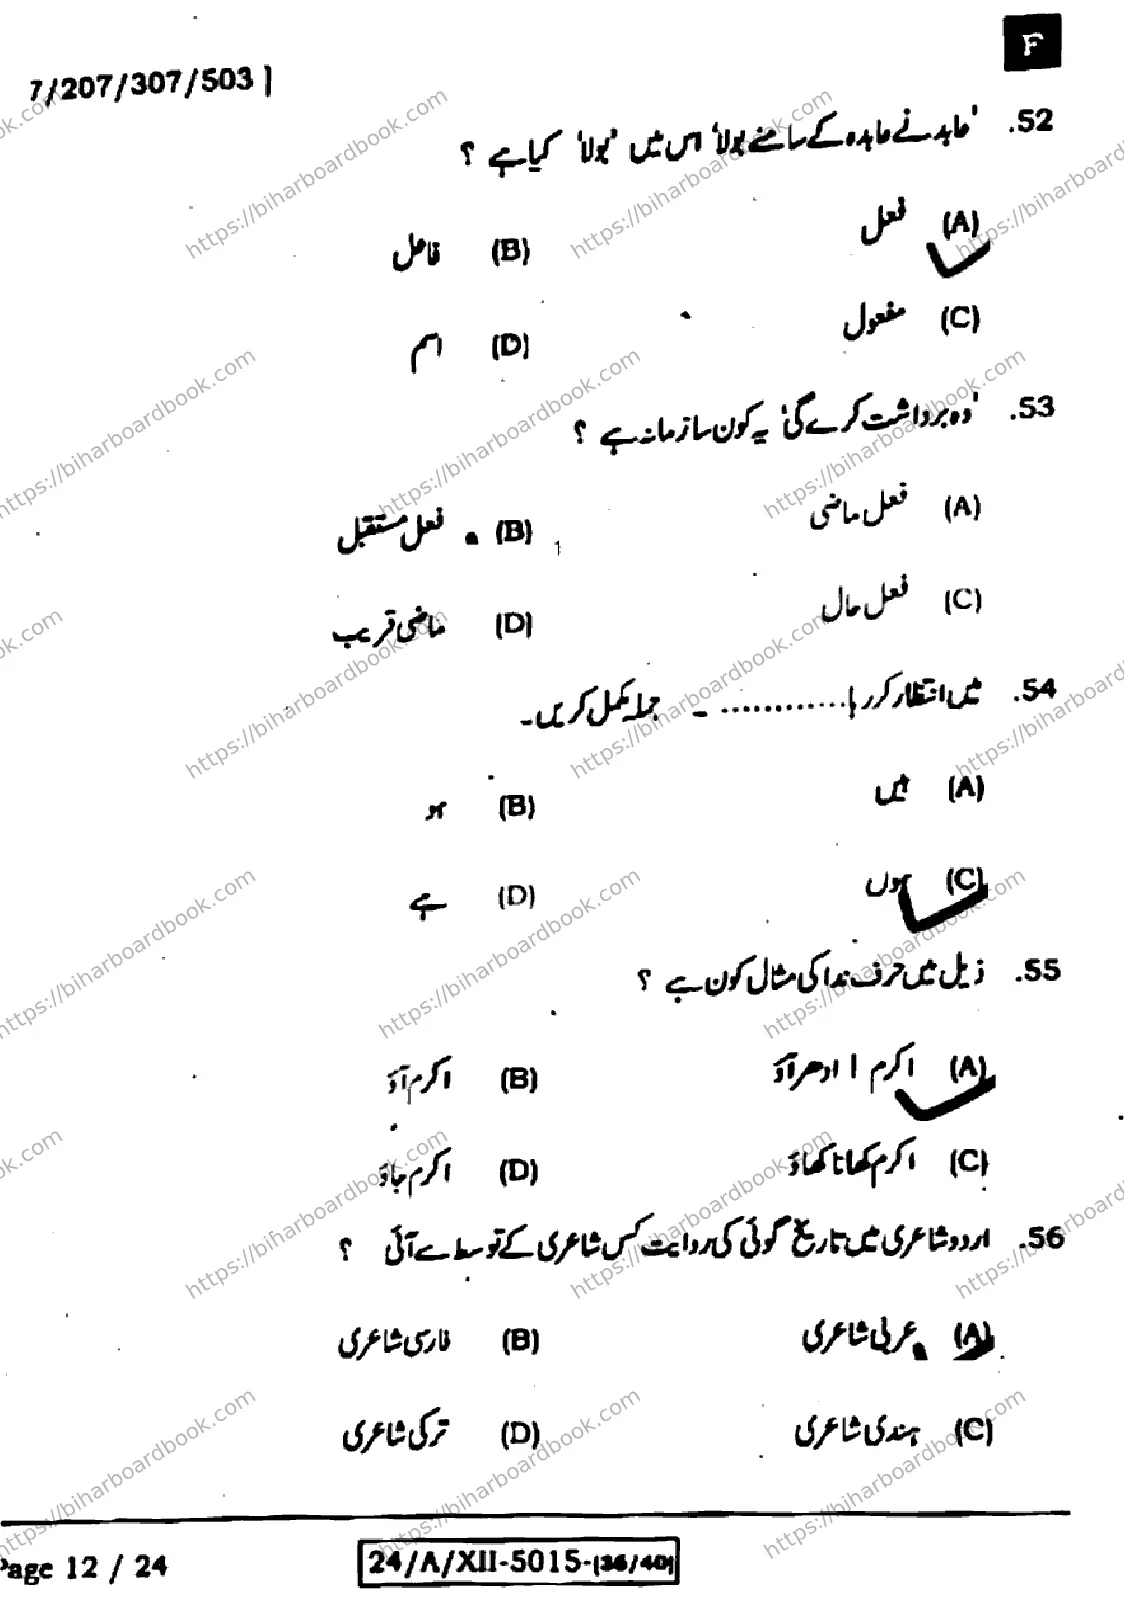 7/207/307/503 ]
F
52. 'عابد نے عابدہ کے سامنے بولا' اس میں 'بولا' کیا ہے ؟
(A) فعل
(B) فاعل
(C) مفعول
(D) اسم
53. 'وہ برداشت کرے گی' یہ کون سا زمانہ ہے ؟
(A) فعل ماضی
(B) فعل مستقبل
(C) فعل حال
(D) ماضی قریب
54. میں انتظار کر رہا ............ ۔ جملہ مکمل کریں۔
(A) ہیں
(B) ہو
(C) ہوں
(D) ہے
55. ذیل میں حرف ندا کی مثال کون ہے ؟
(A) اکرم ! ادھر آؤ
(B) اکرم آؤ
(C) اکرم کھانا کھاؤ
(D) اکرم جاؤ
56. اردو شاعری میں تاریخ گوئی کی روایت کس شاعری کے توسط سے آئی ؟
(A) عربی شاعری
(B) فارسی شاعری
(C) ہندی شاعری
(D) ترکی شاعری
Page 12 / 24
24/A/XII-5015-(36/40)
https://biharboardbook.com